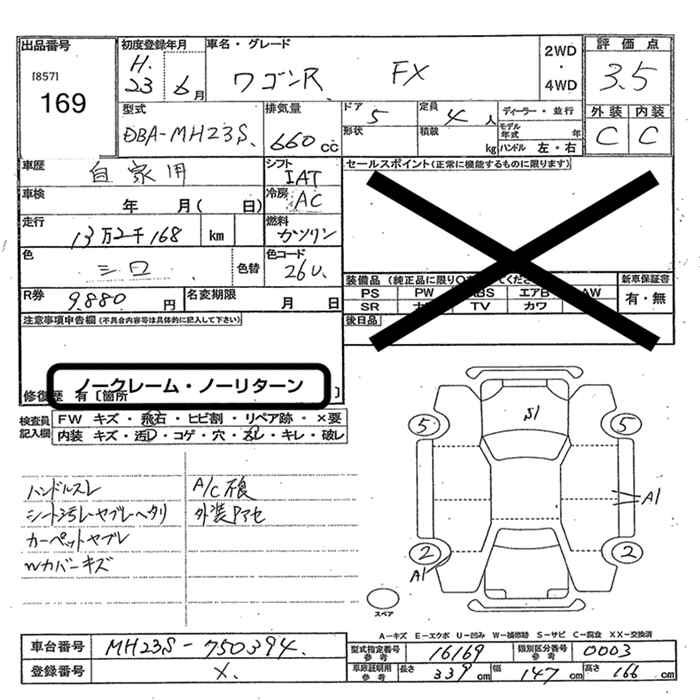 出品番号 初度登録年月 車名・グレード 2WD・4WD 評価点
[857] 169 H.23 6月 ワゴンR FX 3.5
型式 排気量 ドア 5 定員 4人 ディーラー・並行 外装 内装
DBA-MH23S 660cc 形状 積載 kg モデル年式 年 ハンドル 左・右 C C
車歴 自家用 シフト IAT セールスポイント(正常に機能するものに限ります)
車検 年 月( 日) 冷房 AC
走行 13万2千168 km 燃料 ガソリン
色 シロ 色替 色コード 26U
R券 9.880円 名変期限 月 日
装備品 (純正品に限り 新車保証書
PS PW ABS エアB AW 有・無
SR TV カワ
後日品
注意事項申告欄(不具合内容等は具体的に記入して下さい)
ノークレーム・ノーリターン
修復歴 有〔箇所 〕
検査員記入欄 FW キズ・飛石・ヒビ割・リペア跡・×要
内装 キズ・汚レ・コゲ・穴・スレ・キレ・破レ
ハンドルスレ A/C不良
シート汚レヤブレヘタリ 外装アセ
カーペットヤブレ
Wカバーキズ
S1
5 5
A1
2 2
A1
スペア
A-キズ E-エクボ U-凹み W-補修跡 S-サビ C-腐食 XX-交換済
車台番号 MH23S-750394
登録番号 X
型式指定番号参考 16169 類別区分番号参考 0003
車庫証明用参考 長さ 339cm 幅 147cm 高さ 166cm